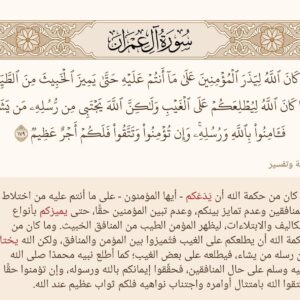 سُورَةُ آلِ عِمْرَانَ
كَانَ اللَّهُ لِيَذَرَ الْمُؤْمِنِينَ عَلَىٰ مَا أَنتُمْ عَلَيْهِ حَتَّىٰ يَمِيزَ الْخَبِيثَ مِنَ
كَانَ اللَّهُ لِيُطْلِعَكُمْ عَلَى الْغَيْبِ وَلَٰكِنَّ اللَّهَ يَجْتَبِي مِن رُّسُلِهِ مَن
فَآمِنُوا بِاللَّهِ وَرُسُلِهِ ۚ وَإِن تُؤْمِنُوا وَتَتَّقُوا فَلَكُمْ أَجْرٌ عَظِيمٌ ١٧٩
وتفسير
كان من حكمة الله أن يَدَعَكم - أيها المؤمنون - على ما أنتم عليه من اختلاط
وعدم تمايز بينكم، وعدم تبين المؤمنين حقًّا، حتى يميزكم بأنواع
والابتلاءات، ليظهر المؤمن الطيب من المنافق الخبيث. وما كان من
الله أن يطلعكم على الغيب فتميزوا بين المؤمن والمنافق، ولكن الله
من رسله من يشاء، فيطلعه على بعض الغيب؛ كما أطلع نبيه محمدًا صلى الله
وسلم على حال المنافقين، فحققوا إيمانكم بالله ورسوله، وإن تؤمنوا حقًّا
الله بامتثال أوامره واجتناب نواهيه فلكم ثواب عظيم عند الله.